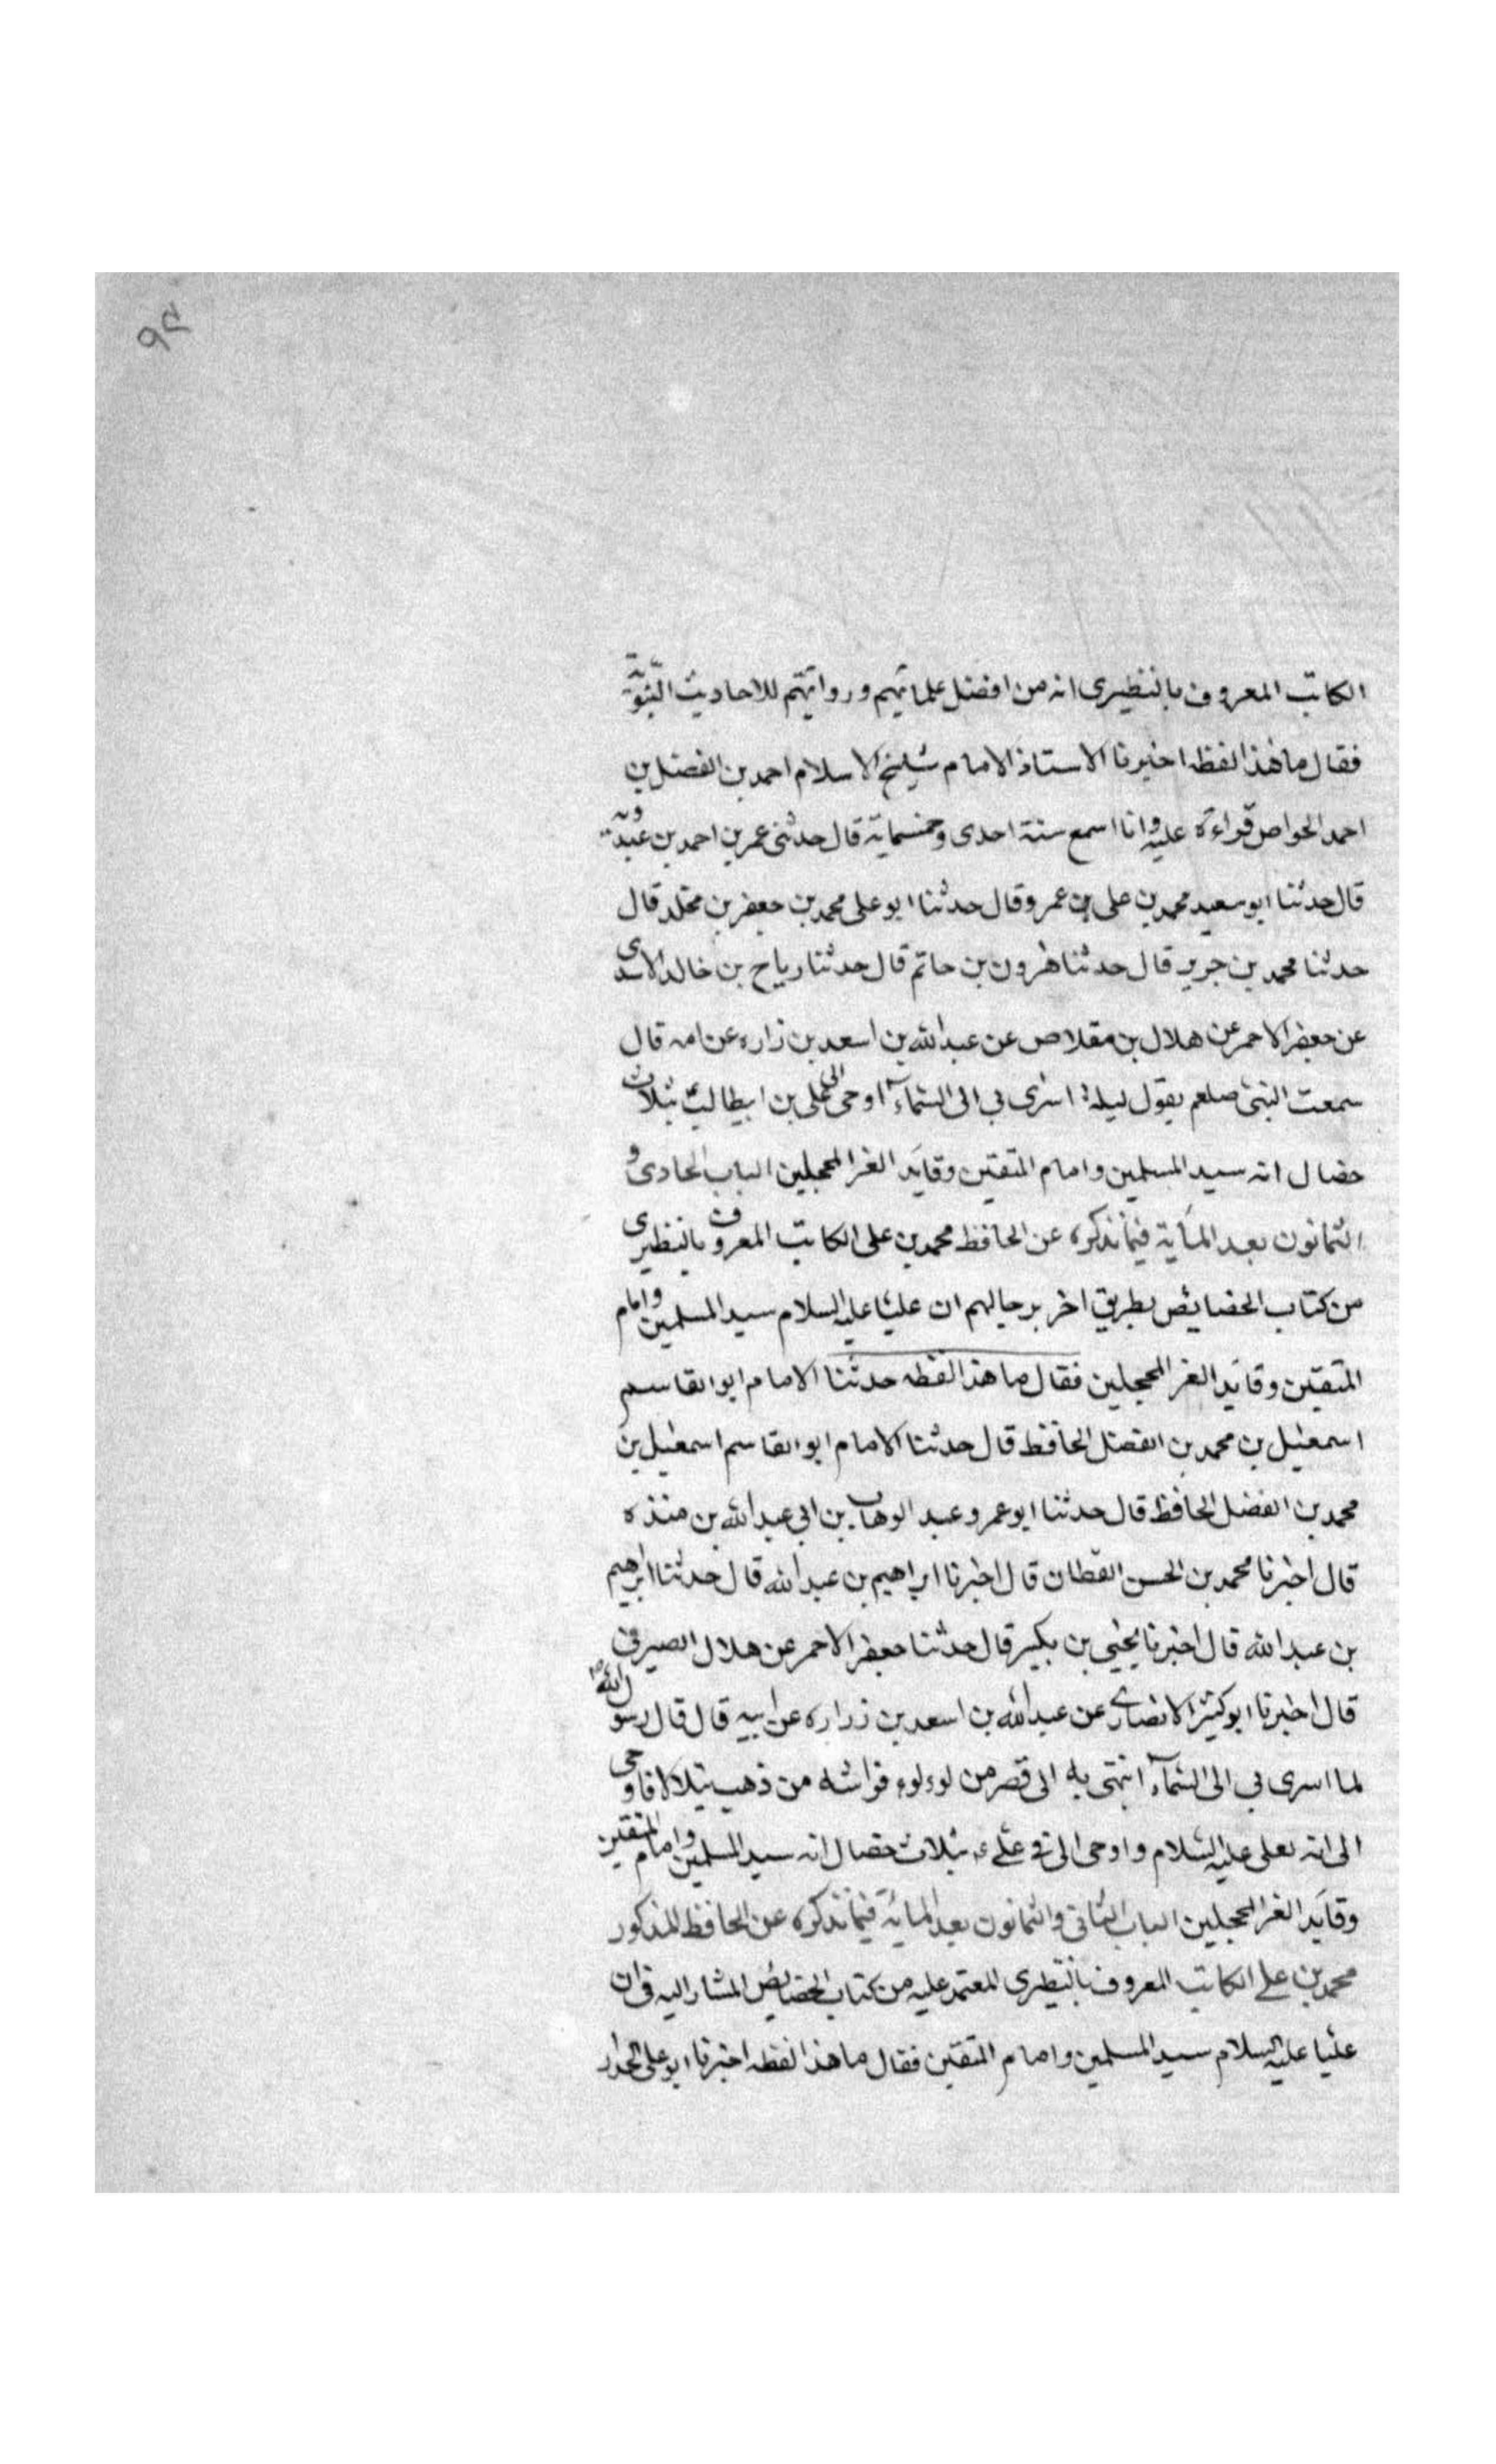 ٩٢
الكاتب المعروف بالنطنزى انه من افضل علمائهم وروايتهم للاحاديث النبوية
فقال ما هذا لفظه اخبرنا الاستاذ الامام شيخ الاسلام احمد بن الفضل بن
احمد الخواص قراءة عليه وانا اسمع سنة احدى وخمسماية قال حدثنى عمر بن احمد بن عبدويه
قال حدثنا ابو سعيد محمد بن على بن عمرو قال حدثنا ابو على محمد بن جعفر بن مخلد قال
حدثنا محمد بن جرير قال حدثنا هرون بن حاتم قال حدثنا رياح بن خالد الاسدى
عن جعفر الاحمر عن هلال بن مقلاص عن عبد الله بن اسعد بن زاره عن امه قال
سمعت النبى صلعم يقول ليلة اسرى بى الى السماء اوحى الى فى على بن ابيطالب بثلاث
خصال انه سيد المسلمين وامام المتقين وقايد الغر المحجلين الباب الحادى و
الثمانون بعد الماية فيما نذكره عن الحافظ محمد بن على الكاتب المعروف بالنطنزى
من كتاب الخصايص بطريق اخر برجالهم ان عليا عليه السلام سيد المسلمين وامام
المتقين وقايد الغر المحجلين فقال ما هذا لفظه حدثنا الامام ابو القاسم
اسمعيل بن محمد بن الفضل الحافظ قال حدثنا الامام ابو القاسم اسمعيل بن
محمد بن الفضل الحافظ قال حدثنا ابو عمرو عبد الوهاب بن ابى عبد الله بن منذه
قال اخبرنا محمد بن الحسن القطان قال اخبرنا ابراهيم بن عبد الله قال حدثنا ابرهيم
بن عبد الله قال اخبرنا يحيى بن بكير قال حدثنا جعفر الاحمر عن هلال الصيرفى
قال اخبرنا ابو كثير الانصارى عن عبد الله بن اسعد بن زراره عن ابيه قال قال رسول الله ص
لما اسرى بى الى السماء انتهى به الى قصر من لوءلوء فراشه من ذهب يتلالا فاوحى
الى انه لعلى عليه السلام واوحى الى فى على ع بثلاث خصال انه سيد المسلمين وامام المتقين
وقايد الغر المحجلين الباب الثانى والثمانون بعد الماية فيما نذكره عن الحافظ المذكور
محمد بن على الكاتب المعروف بالنطنزى المعتمد عليه من كتاب الخصايص المشار اليه فى ان
عليا عليه السلام سيد المسلمين وامام المتقين فقال ما هذا لفظه اخبرنا ابو على الحداد